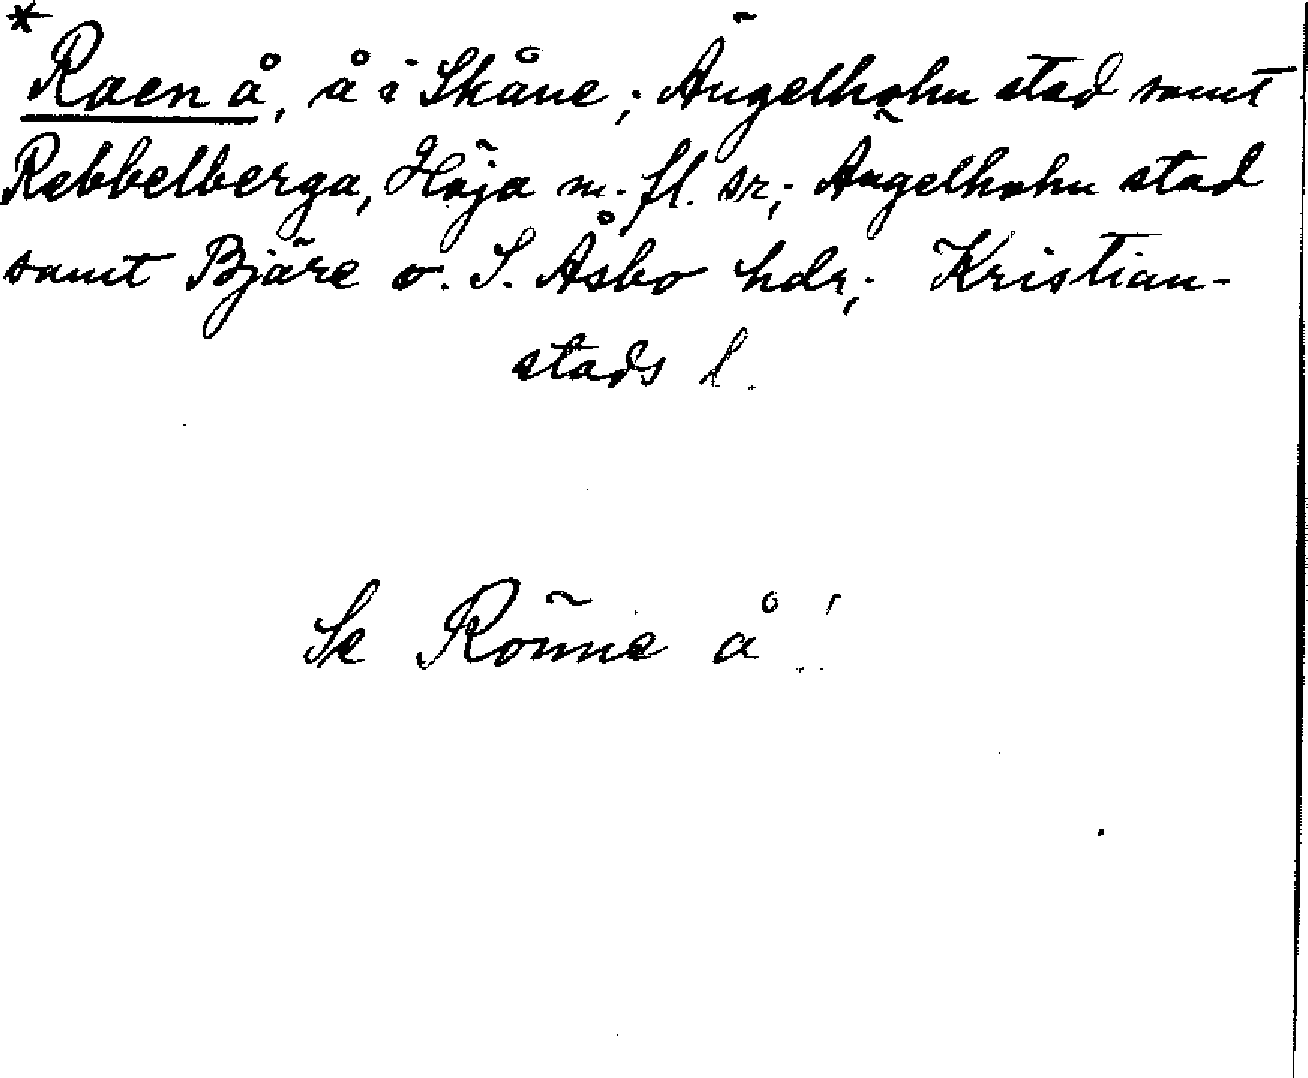 *
Raen å, å i Skåne; Ängelholm stad samt
Rebbelberga, Höja m. fl. sr; Ängelholm stad
samt Bjäre o. S. Åsbo hdr; Kristian-
stads l.
Se Rönne å!